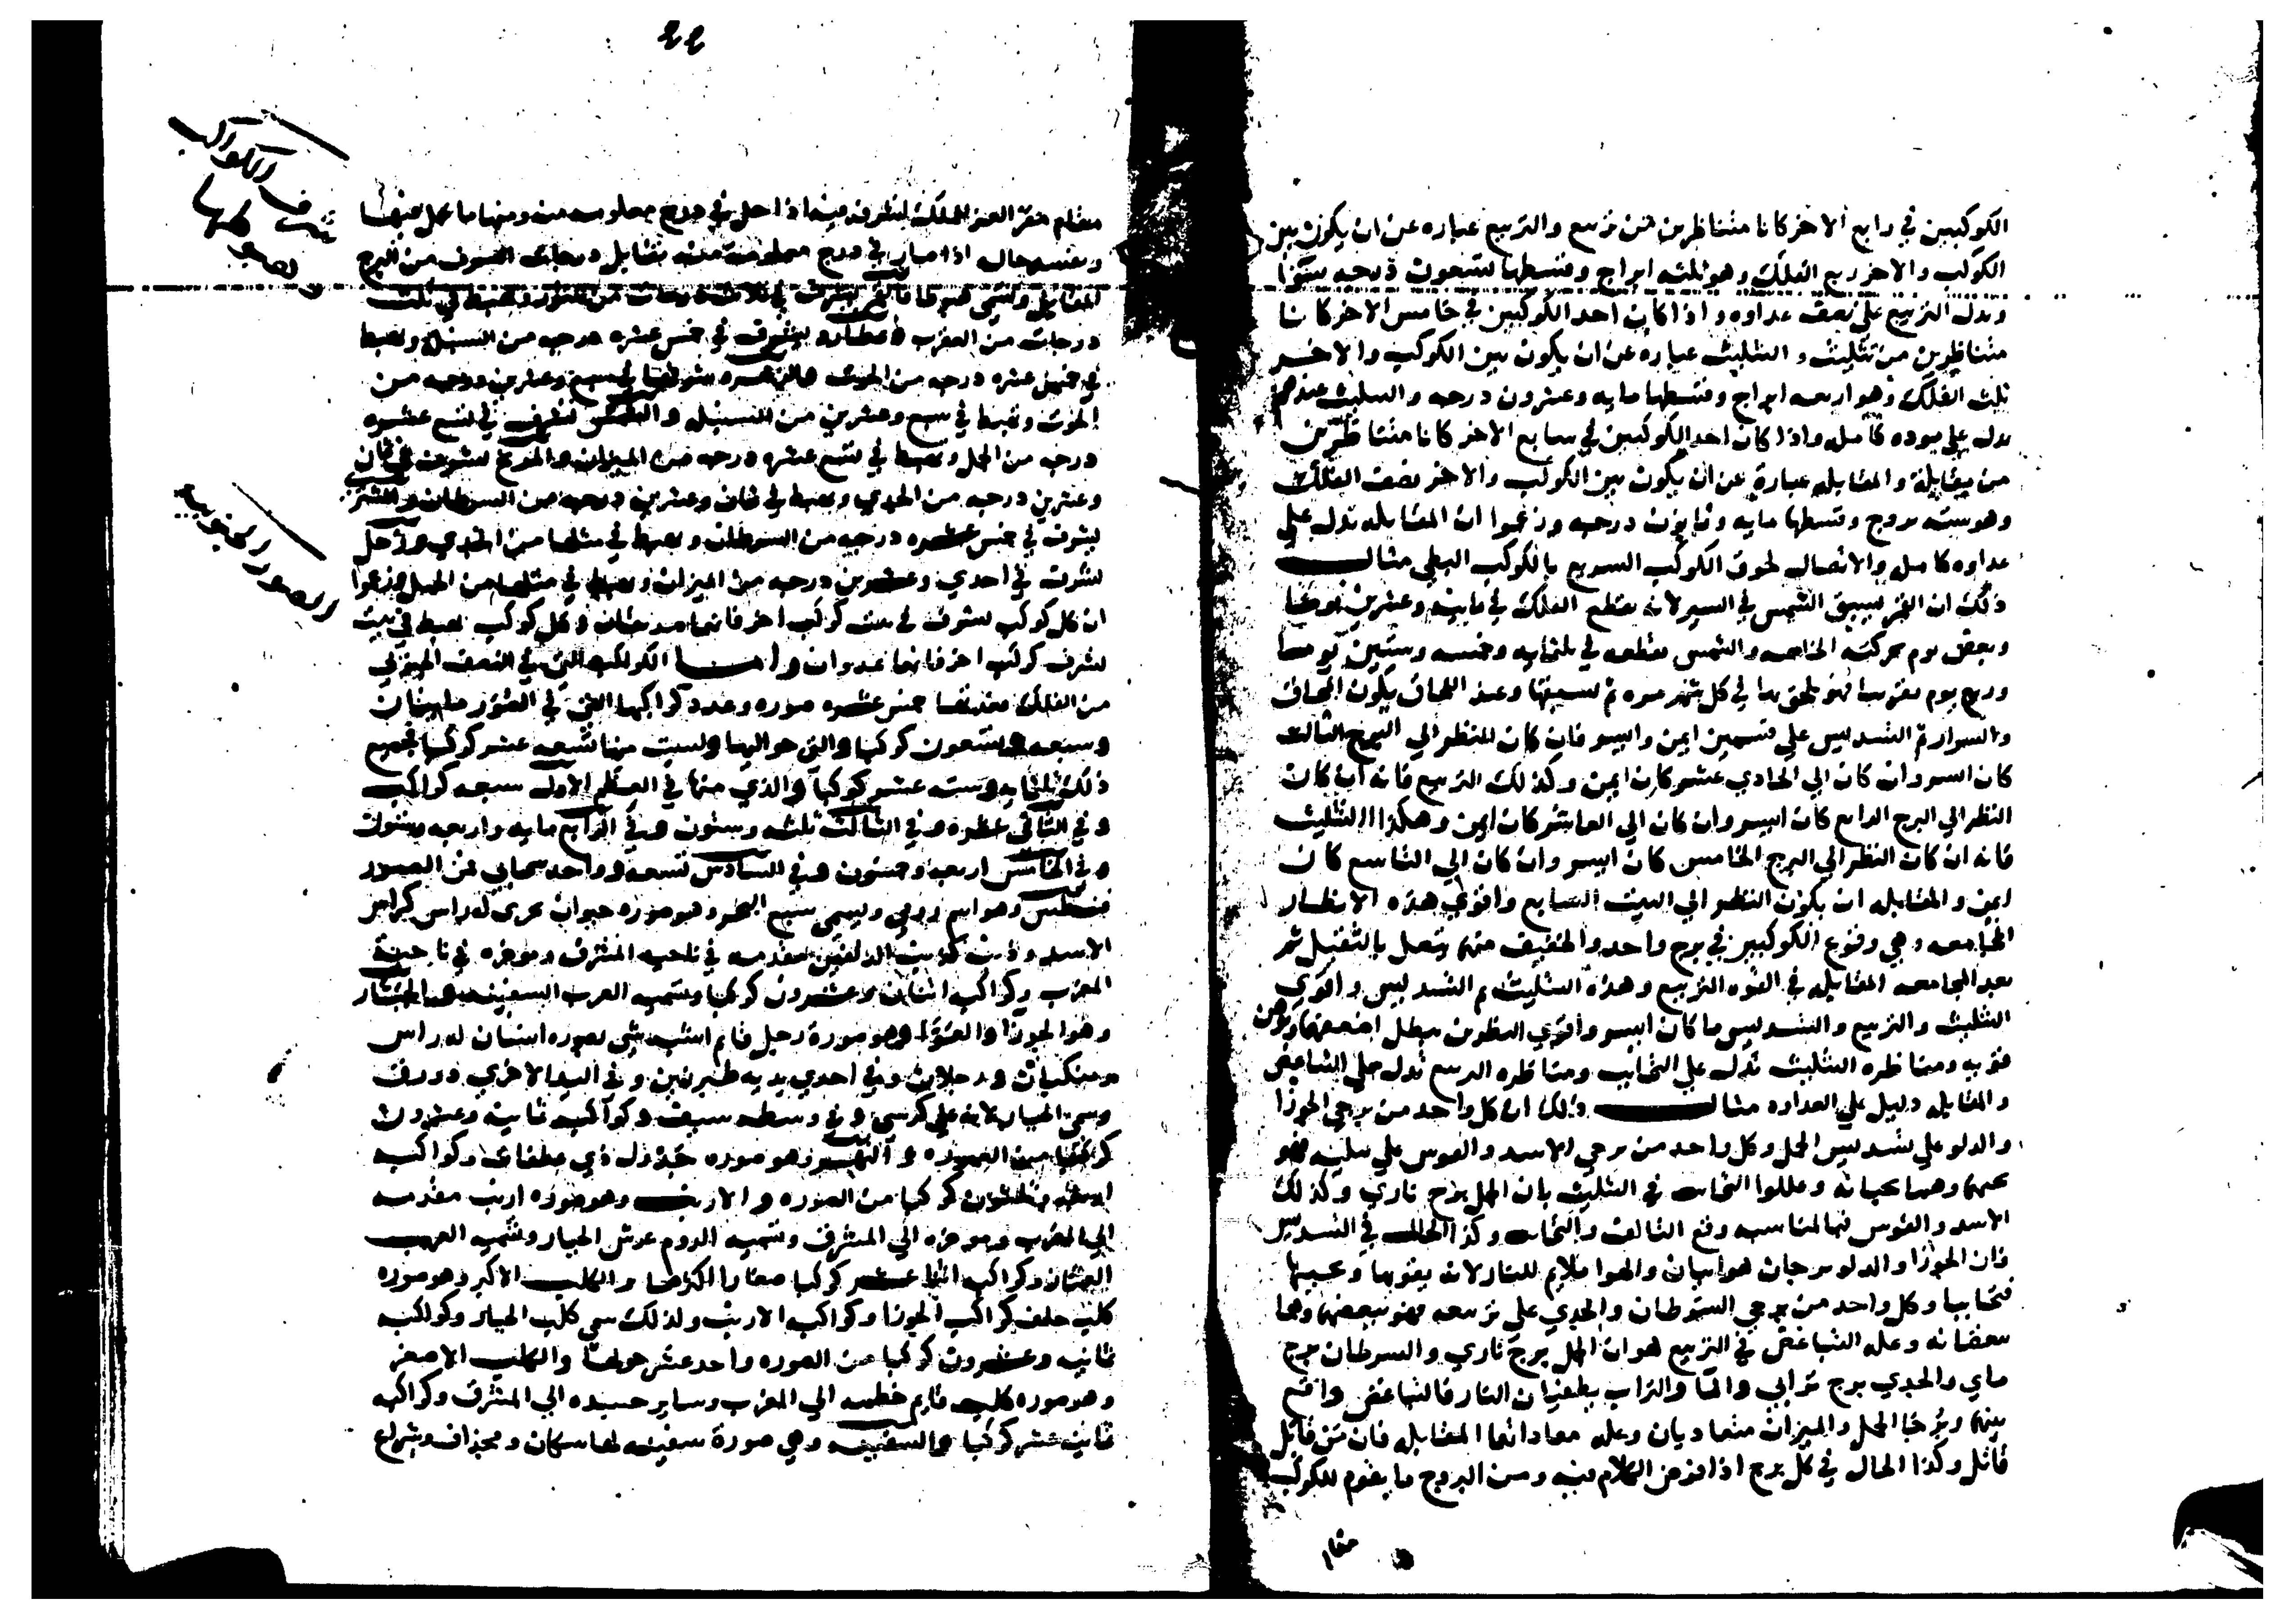 الكوكبين في رابع الاخر كانا متناظرين من تربيع والتربيع عباره عن ان يكون بين
الكوكب والاخر ربع الفلك وهو ثلثه ابراج وقسطها تسعون درجه سوا
ويدل التربيع علي نصف عداوه واذا كان احد الكوكبين في خامس الاخر كانا
متناظرين من تثليث والتثليث عباره عن ان يكون بين الكوكب والاخر
ثلث الفلك وهو اربعه ابراج وقسطها مايه وعشرون درجه والتثليث عندهم
يدل علي موده كامله واذا كان احد الكوكبين في سابع الاخر كانا متناظرين
من مقابلة والمقابله عبارة عن ان يكون بين الكوكب والاخر نصف الفلك
وهو سته بروج وقسطها مايه وثمانون درجه وزعموا ان المقابله تدل علي
عداوه كامله والاتصال لحوق الكوكب السريع بالكوكب البطي مثال
ذلك ان القمر يسبق الشمس في السير لانه يقطع الفلك في ثمانيه وعشرين يوما
وبعض يوم بحركته الخاصه والشمس تقطعه في ثلثمايه وخمسه وستين يوما
وربع يوم تقريبا فهو يلحق بها في كل شهر مره ثم يسبقها وعند اللحاق يكون المحاق
والسرار ثم التسديس علي قسمين ايمن وايسر فان كان النظر الي البرج الثالث
كان ايسر وان كان الي الحادي عشر كان ايمن وكذلك التربيع فانه ان كان
النظر الي البرج الرابع كان ايسر وان كان الي العاشر كان ايمن وهكذا التثليث
فانه ان كان النظر الي البرج الخامس كان ايسر وان كان الي التاسع كان
ايمن والمقابله ان يكون النظر الي البيت السابع واقوي هذه الانظار
المجامعه وهي وقوع الكوكبين في برج واحد والخفيف منهما يتصل بالثقيل ثم
بعد المجامعه المقابله في القوه التربيع وهذه التثليث ثم التسديس واقوي
التثليث والتربيع والتسديس ما كان ايسر واقوي النظرين يبطل اضعفهما ويوهن
قوته ومناظره التثليث تدل علي التحابب ومناظره التربيع تدل علي التباغض
والمقابله دليل علي العداوه مثال ذلك ان كل واحد من برجي الجوزا
والدلو علي تسديس الحمل وكل واحد من برجي الاسد والقوس علي تثليثه فهو
يحبهما وهما يحبانه وعللوا التحابب في التثليث بان الحمل برج ناري وكذلك
الاسد والقوس فبالمناسبه وقع التالف والتحابب وكذا الحال في التسديس
فان الجوزا والدلو برجان هوائيان والهوا ملايم للنار لانه يقويها ويحييها
فتحاببا وكل واحد من برجي السرطان والجدي علي تربيعه فهو يبغضهما وهما
يبغضانه وعله التباغض في التربيع هو ان الحمل برج ناري والسرطان برج
ماي والجدي برج ترابي والما والتراب يطفيان النار فالتباغض واقع
بينهما وبرجا الحمل والميزان متعاديان وعله معاداتهما المقابله فان من قابل
قاتل وكذا الحال في كل برج اذا فرض الكلام فيه ومن البروج ما يقوم للكوكب
مقام
شرف الكواكب
مقام مقر العز للملك ليشرف فيه اذا حل في درج معلومه منه ومنها ما
اذا صار في درج معلومة منه تقابل درجات الشرف من البرج
المقابل ويسمي هبوطا فالقمر يشرف في ثلاث درجات من الثور ويهبط في ثلث
درجات من العقرب وعطارد يشرف في خمس عشره درجه من السنبله ويهبط
في خمس عشره درجه من الحوت والزهره شرفها في سبع وعشرين درجه من
الحوت وتهبط في سبع وعشرين من السنبله والشمس تشرف في تسع عشره
درجه من الحمل وتهبط في تسع عشره درجه من الميزان والمريخ يشرف في ثمان
وعشرين درجه من الجدي ويهبط في ثمان وعشرين درجه من السرطان والمشتري
يشرف في خمس عشره درجه من السرطان ويهبط في مثلها من الجدي وزحل
يشرف في احدي وعشرين درجه من الميزان ويهبط في مثلها من الحمل وزعموا
ان كل كوكب يشرف في بيت كوكب اخر فانهما صديقان وكل كوكب يهبط في بيت
شرف كوكب اخر فانهما عدوان واما الكواكب التي في النصف الجنوبي
الصور الجنوبيه
من الفلك خمس عشره صوره وعدد كواكبها التي في الصور مايتان
وسبعه وتسعون كوكبا والتي حواليها وليست منها تسعه عشر كوكبا فجميع
ذلك ثلثمايه وسته عشر كوكبا والذي منها في العظم الاول سبعه كواكب
وفي الثاني عشره وفي الثالث ثلثه وستون وفي الرابع مايه واربعه وستون
وفي الخامس اربعه وخمسون وفي السادس تسعه وواحد سحابي فمن الصور
قيطس وهو اسم رومي ويسمي سبع البحر وهو صوره حيوان بحري له راس كراس
الاسد وذنب كذنب الدلفين مقدمه في ناحيه المشرق وموخره في ناحية
المغرب وكواكبه اثنان وعشرون كوكبا وتسميه العرب السفينه والجبار
وهو الجوزا وهو صورة رجل قايم اشبه شي بصوره انسان له راس
ومنكبان ورجلان وفي احدي يديه وفي اليد الاخري
وسمي الجبار لانه علي كرسي وفي وسطه سيف وكواكبه ثمانيه وعشرون
كوكبا من الصوره والنهر وهو صوره جدول ذي عطفات وكواكبه
اربعه وثلثون كوكبا من الصوره والارنب وهو صوره ارنب مقدمه
الي المغرب وموخره الي المشرق وتسميه الروم عرش الجبار وتسميه العرب
وكواكبه اثنا عشر كوكبا والكلب الاكبر وهو صوره
كلب خلف كواكب الجوزا وكواكب الارنب ولذلك سمي كلب الجبار وكواكبه
ثمانيه وعشرون كوكبا من الصوره واحد عشر حولها والكلب الاصغر
وهو صوره كلب قايم خطمه الي المغرب وساير جسده الي المشرق وكواكبه
ثمانيه عشر كوكبا والسفينه وهي صورة سفينه لها سكان ومجذاف وشراع